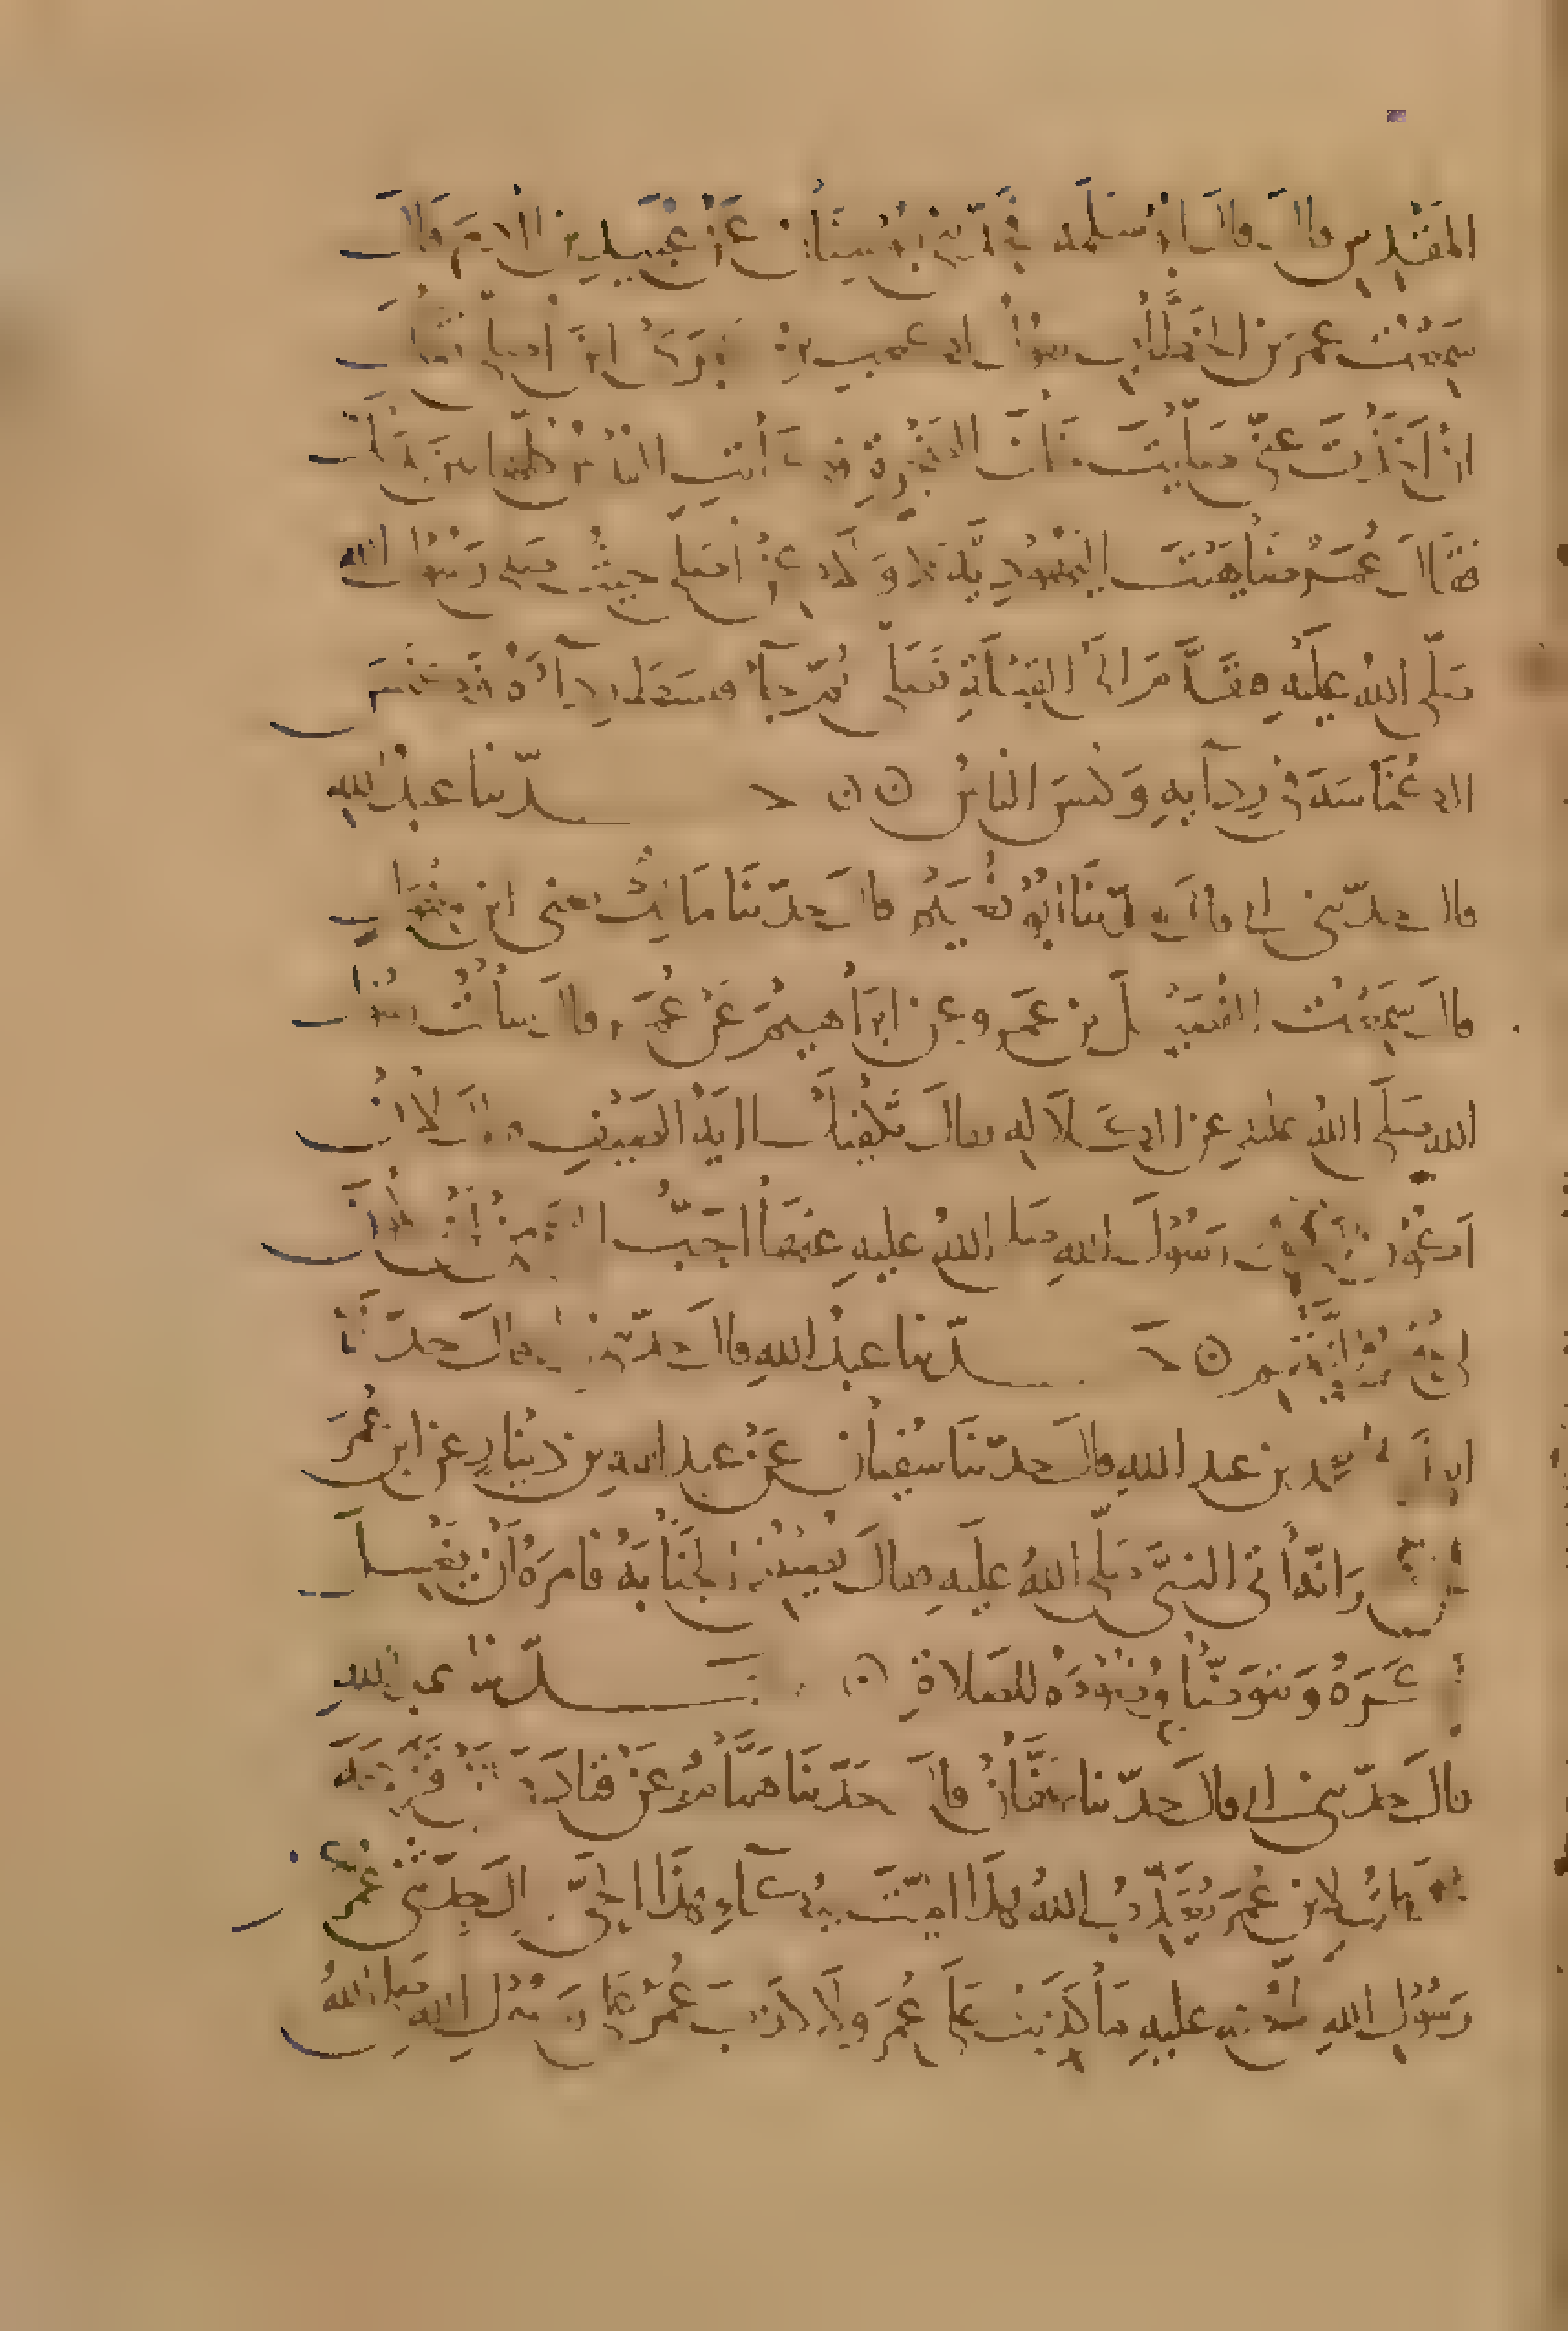 المقدس قال قال ابو سلمه فحدثني ابو سنان عن عبيد بن ادم قال
سمعت عمر بن الخطاب يقول لكعب اين ترى ان اصلي فقال
ان اخذت عني صليت خلف الصخرة فكانت القدس كلها بين يديك
فقال عمر ضاهيت اليهودية لا ولكن اصلي حيث صلى رسول الله
صلى الله عليه فتقدم الى القبلة فصلى ثم جاء فبسط رداءه فكنس
الكناسة في ردايه وكنس الناس حدثنا عبد الله
قال حدثني ابي قال حدثنا ابو نعيم قال حدثنا مالك يعني ابن مغول
قال سمعت الفضيل بن عمرو عن ابراهيم عن عمر قال سالت رسول
الله صلى الله عليه عن الكلاله فقال تكفيك اية الصيف فقال لان
اكون سالت رسول الله صلى الله عليه عنها احب الي من ان يكون
لي حمر النعم حدثنا عبد الله قال حدثني ابي قال حدثنا
ابو احمد محمد بن عبد الله قال حدثنا سفيان عن عبد الله بن دينار عن ابن عمر
عن عمر انه اتى النبي صلى الله عليه فقال تصيبني الجنابة فامره ان يغسل
ذكره ويتوضأ وضوءه للصلاة حدثنا عبد الله
قال حدثني ابي قال حدثنا عفان قال حدثنا همام عن قتادة عن قزعة
قال قلت لابن عمر يعذب الله هذا الميت ببكاء هذا الحي قال حدثني عمر عن
رسول الله صلى الله عليه ما كذبت على عمر ولا كذب عمر على رسول الله صلى الله